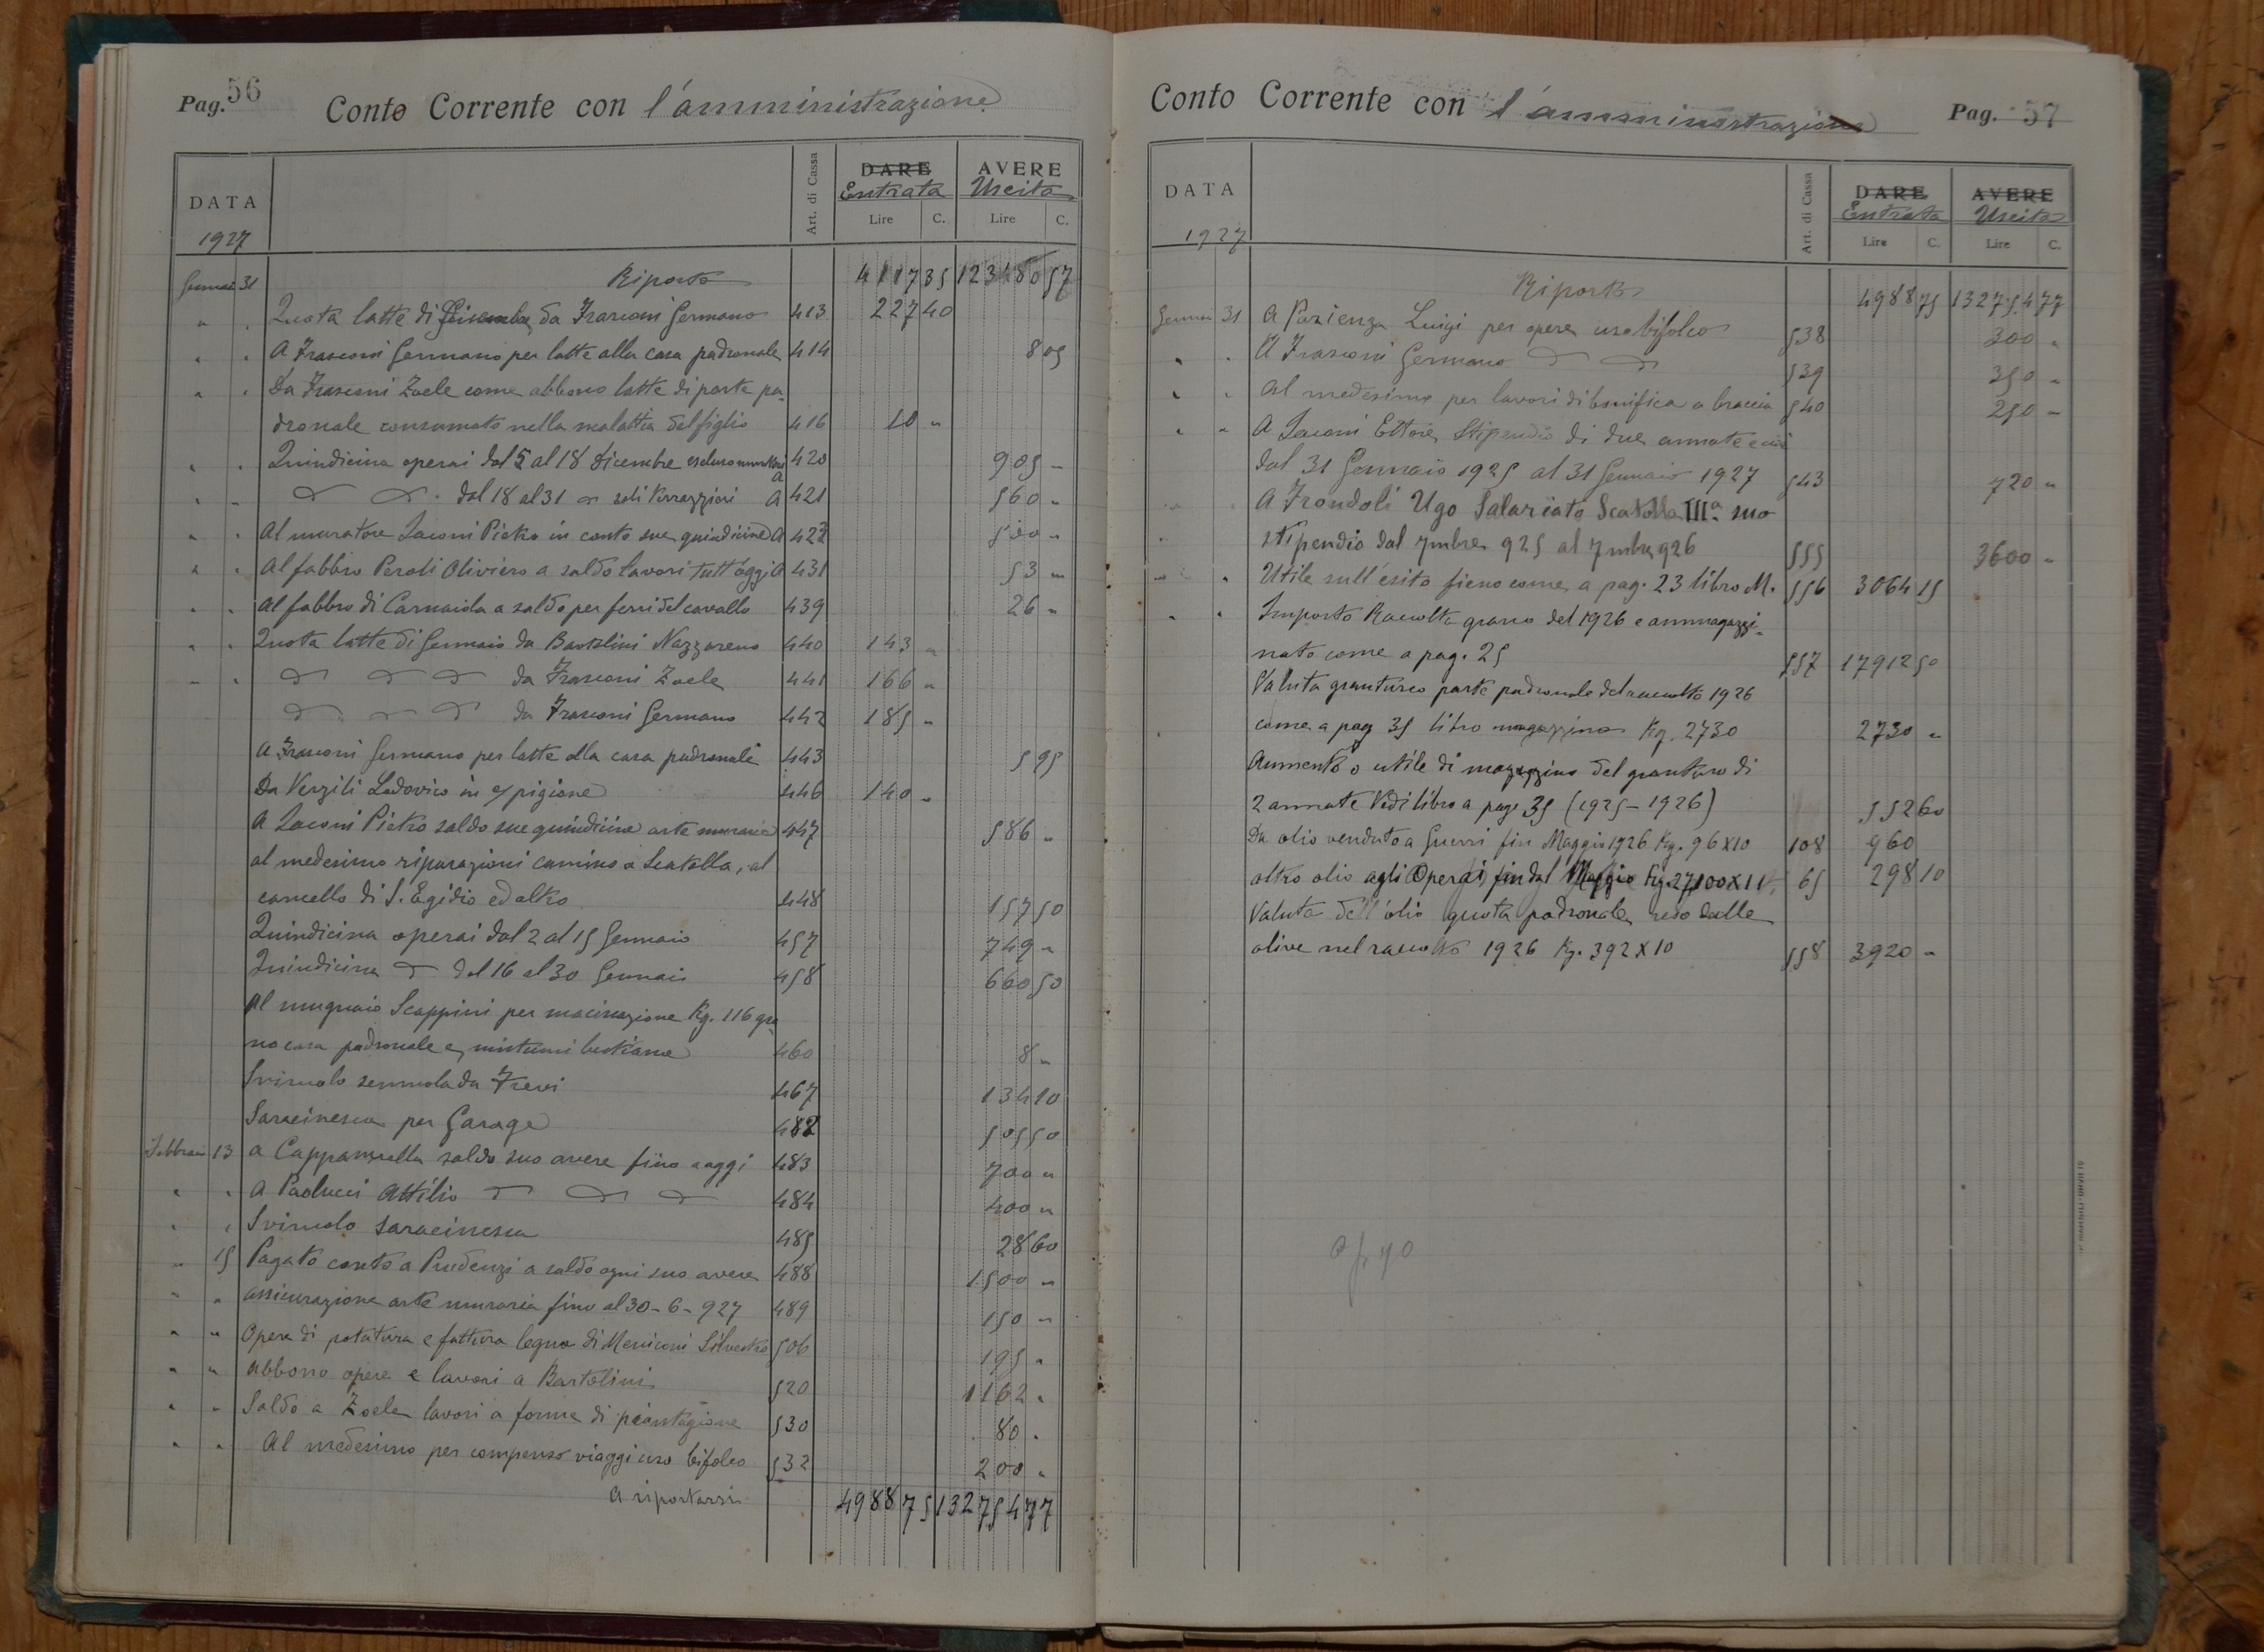 Pag. 56
Conto Corrente con l'amministrazione
DATA
1927
Art. di Cassa
DARE
Entrata
Lire C.
AVERE
Uscita
Lire C.
Gennaio 31 Riporto 4117 35 123480 57
" " Quota latte di Dicembre da Frasconi Germano 413 227 40
" " A Frasconi Germano per latte alla casa padronale 414 8 05
" " Da Frasconi Zoele come abbono latte di parte pa-
dronale consumato nella malattia del figlio 416 10 "
" " Quindicina operai dal 5 al 18 Dicembre escluso muratori 420 905 "
" " dal 18 al 31 soli 421 560 "
" " Al muratore Laconi Pietro in conto sue quindicine 422 500 "
" " Al fabbro Peroli Oliviero a saldo lavori tutt'oggi 431 53 "
" " Al fabbro di Carnaiola a saldo per ferri del cavallo 439 26 "
" " Quota latte di Gennaio da Bartolini Nazzareno 440 143 "
" " da Frasconi Zoele 441 166 "
da Frasconi Germano 442 185 "
A Frasconi Germano per latte alla casa padronale 443 5 95
Da Vergili Lodovico in c/ pigione 446 140 "
A Laconi Pietro saldo sue quindicine arte muraria 447 586 "
al medesimo riparazioni camino a Scatolla, al
cancello di S. Egidio ed altro 448 157 50
Quindicina operai dal 2 al 15 Gennaio 457 749 "
Quindicina dal 16 al 30 Gennaio 458 660 50
Al mugnaio Scappini per macinazione Kg. 116 gra
no casa padronale e mistumi bestiame 460 8 "
Svincolo semmola da Trevi 467 134 10
Saracinesca per Garage 482 505 50
Febbraio 13 a Cappannella saldo suo avere fino a oggi 483 700 "
" " A Paolucci Attilio 484 400 "
" " Svincolo saracinesca 485 28 60
" 15 Pagato conto a Prudenzi a saldo ogni suo avere 488 1500 "
" " assicurazione arte muraria fino al 30-6-927 489 150 "
" " Opere di potatura e fattura legna di Meniconi Silvestro 506 195 "
" " abbono opere e lavori a Bartolini 520 1162 "
" " Saldo a Zoele lavori a forme di piantagione 530 80 "
" " Al medesimo per compenso viaggi uso bifolco 532 200 "
A riportarsi 4988 75 132754 77
Conto Corrente con l'amministrazione
Pag. 57
DATA
1927
Art. di Cassa
DARE
Entrata
Lire C.
AVERE
Uscita
Lire C.
Riporto 4988 75 132754 77
Gennaio 31 A Pazienza Luigi per opere uso bifolco 538 300 "
" " A Frasconi Germano 539 350 "
" " Al medesimo per lavori di bonifica a braccia 540 250 "
" " A Laconi Ettore Stipendio di due annate e cioè
dal 31 Gennaio 1925 al 31 Gennaio 1927 543 720 "
A Frondoli Ugo Salariato Scatolla IIIª suo
stipendio dal 7mbre 925 al 7mbre 926 555 3600 "
" " Utile sull'esito fieno come a pag. 23 libro M. 556 3064 15
" " Importo Raccolta grano del 1926 e ammagazzi-
nato come a pag. 25 557 17912 50
Valuta granturco parte padronale del raccolto 1926
come a pag 35 libro magazzino Kg. 2730 2730 "
Aumento o utile di magazzino del granturco di
2 annate Vedi libro a page 35 (1925-1926) 552 60
Da olio venduto a Guerri fin Maggio 1926 Kg. 96 X 10 108 960
altro olio agli Operai fin dal Maggio Kg. 27,100 X 11 65 298 10
Valuta dell'olio quota padronale reso dalle
olive nel raccolto 1926 Kg. 392 X 10 558 3920 "